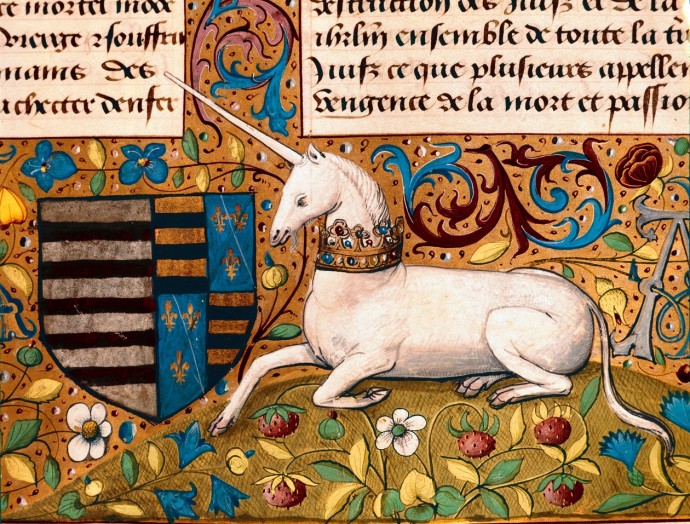 ce mortel mode
vierge & souffrir
mains des
achetter denfer
destruction des Juifz et de la
ihrlm ensemble de toute la
Juifz ce que plusieurs appellen
Vengence de la mort et passio
A